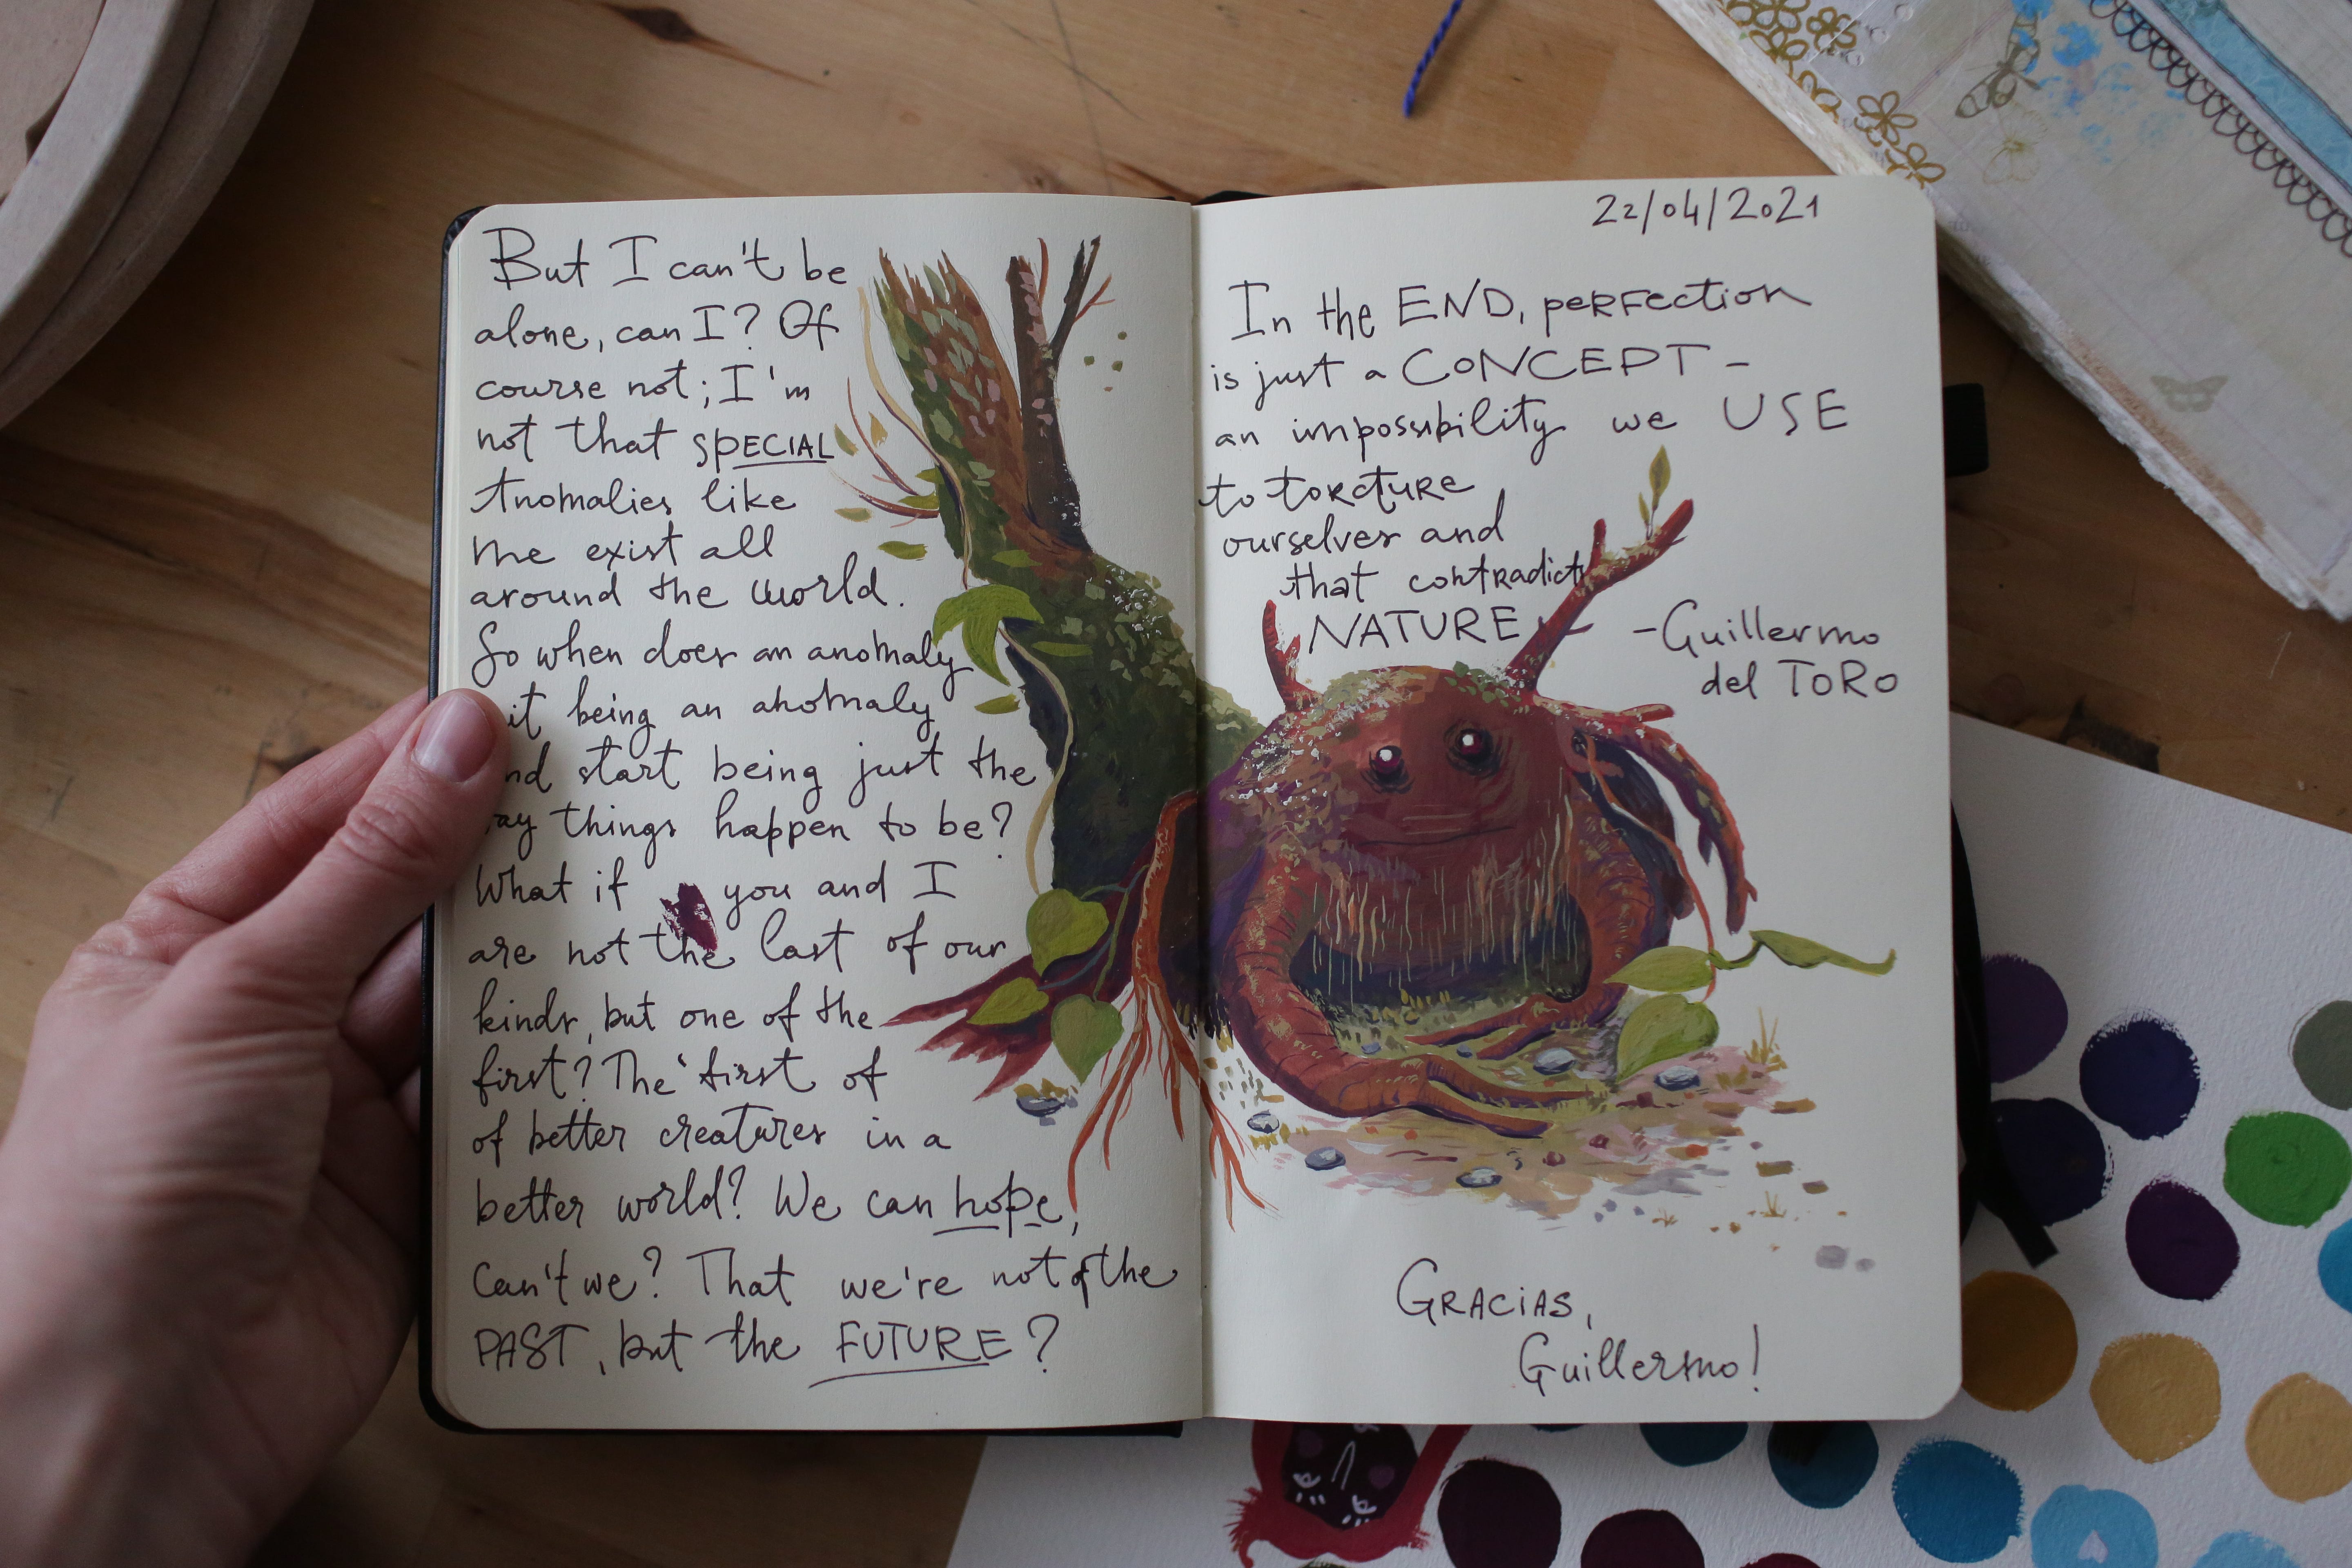 But I can't be
alone, can I? Of
course not; I'm
not that spECIAL
Anomalies like
me exist all
around the world.
So when does an anomaly
it being an anomaly
nd start being just the
ay things happen to be?
What if you and I
are not the last of our
kinds, but one of the
first? The first of
of better creatures in a
better world? We can hope,
Can't we? That we're not of the
PAST, but the FUTURE?
22/04/2021
In the END, peRFection
is just a CONCEPT -
an impossibility we USE
to torctuRE
ourselves and
that contRadicts
NATURE
- Guillermo
del ToRo
GRACiAS,
Guillermo!